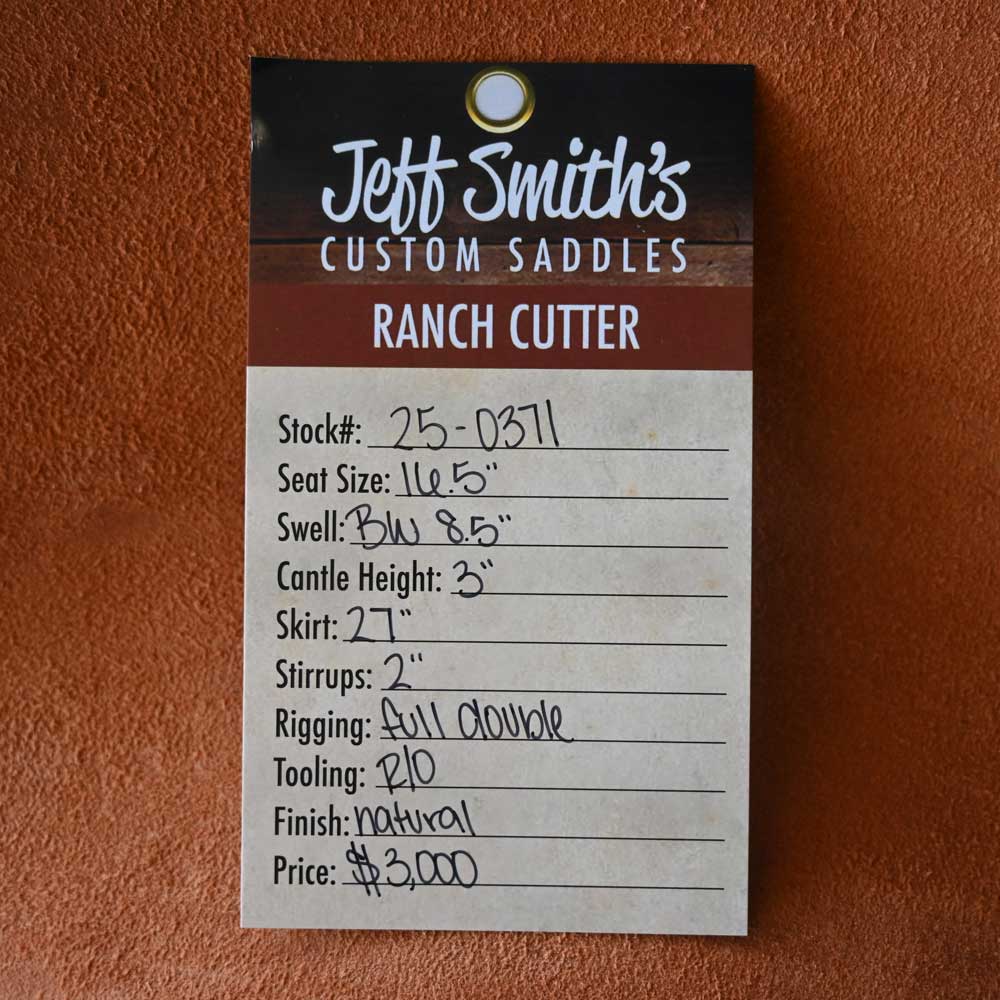 Jeff Smith's
CUSTOM SADDLES
RANCH CUTTER
Stock#: 25-0371
Seat Size: 16.5"
Swell: BW 8.5"
Cantle Height: 3"
Skirt: 27"
Stirrups: 2"
Rigging: full double
Tooling: R/O
Finish: natural
Price: $3,000